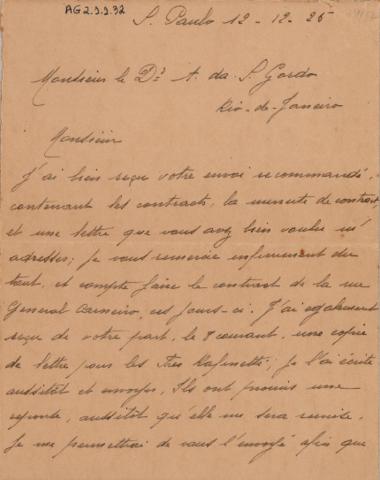 AG2.9.9.32
S. Paulo 12-12-25
Monsieur le Dr. A. da S. Gordo
Rio-de-Janeiro
Monsieur
J'ai bien reçu votre envoi recommandé,
contenant les contracts, la minute de contract
et une lettre que vous avez bien voulu m'
adresser; je vous remercie infiniment du
tout, et compte faire le contract de la rue
General Carneiro, ces jours-ci. J'ai egalement
reçu de votre part, le 8 courant, une copie
de lettre pour les frères; je l'ai écrite
aussitôt et envoyé. Ils ont promis une
reponse, aussitôt qu'elle me sera remise,
je me permettrai de vous l'envoyé afin que